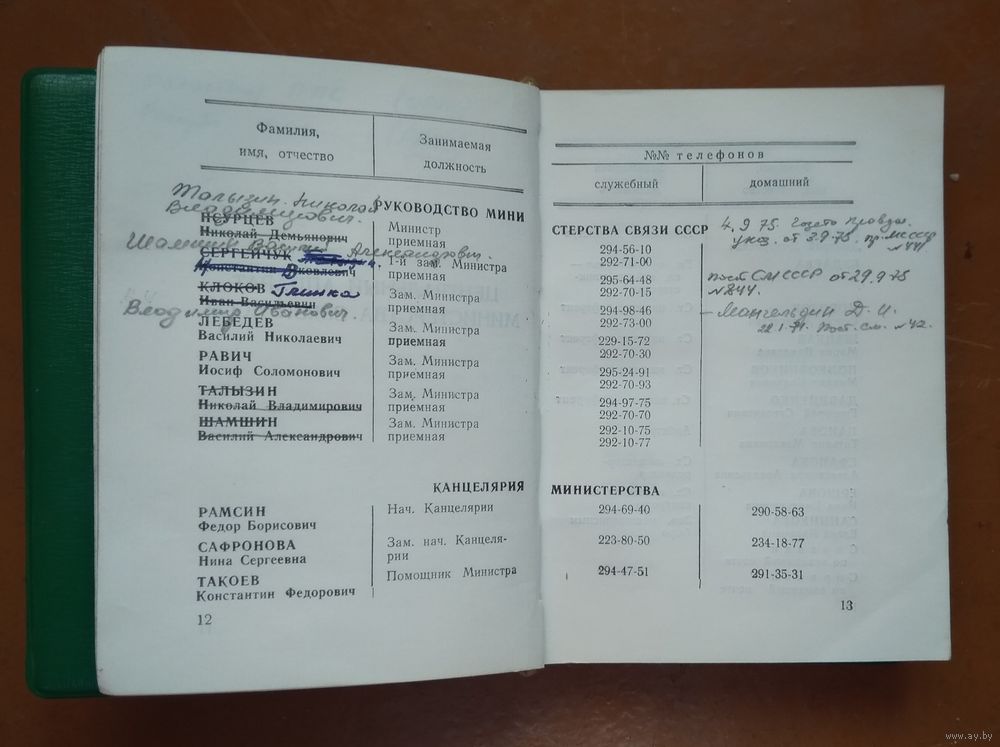 Фамилия,
имя, отчество
Занимаемая
должность
Талызин Николай
Владимирович.
РУКОВОДСТВО МИНИ
ПСУРЦЕВ
Николай Демьянович
Министр
приемная
Шамшин Василий Александрович.
СЕРГЕЙЧУК
Константин Яковлевич
1-й зам. Министра
приемная
КЛОКОВ Глинка
Иван Васильевич
Зам. Министра
приемная
Владимир Иванович.
ЛЕБЕДЕВ
Василий Николаевич
Зам. Министра
приемная
РАВИЧ
Иосиф Соломонович
Зам. Министра
приемная
ТАЛЫЗИН
Николай Владимирович
Зам. Министра
приемная
ШАМШИН
Василий Александрович
Зам. Министра
приемная
КАНЦЕЛЯРИЯ
РАМСИН
Федор Борисович
Нач. Канцелярии
САФРОНОВА
Нина Сергеевна
Зам. нач. Канцеля-
рии
ТАКОЕВ
Константин Федорович
Помощник Министра
12
№№ телефонов
служебный
домашний
СТЕРСТВА СВЯЗИ СССР
4.9 75. Газета Правда.
указ. от 3.9.75.
294-56-10
292-71-00
295-64-48
292-70-15
пост СМ СССР от 29.9.75
294-98-46
292-73-00
— Мангельдин Д. И.
Пост. См. №42.
229-15-72
292-70-30
295-24-91
292-70-93
294-97-75
292-70-70
292-10-75
292-10-77
МИНИСТЕРСТВА
294-69-40
290-58-63
223-80-50
234-18-77
294-47-51
291-35-31
13
www.ay.by